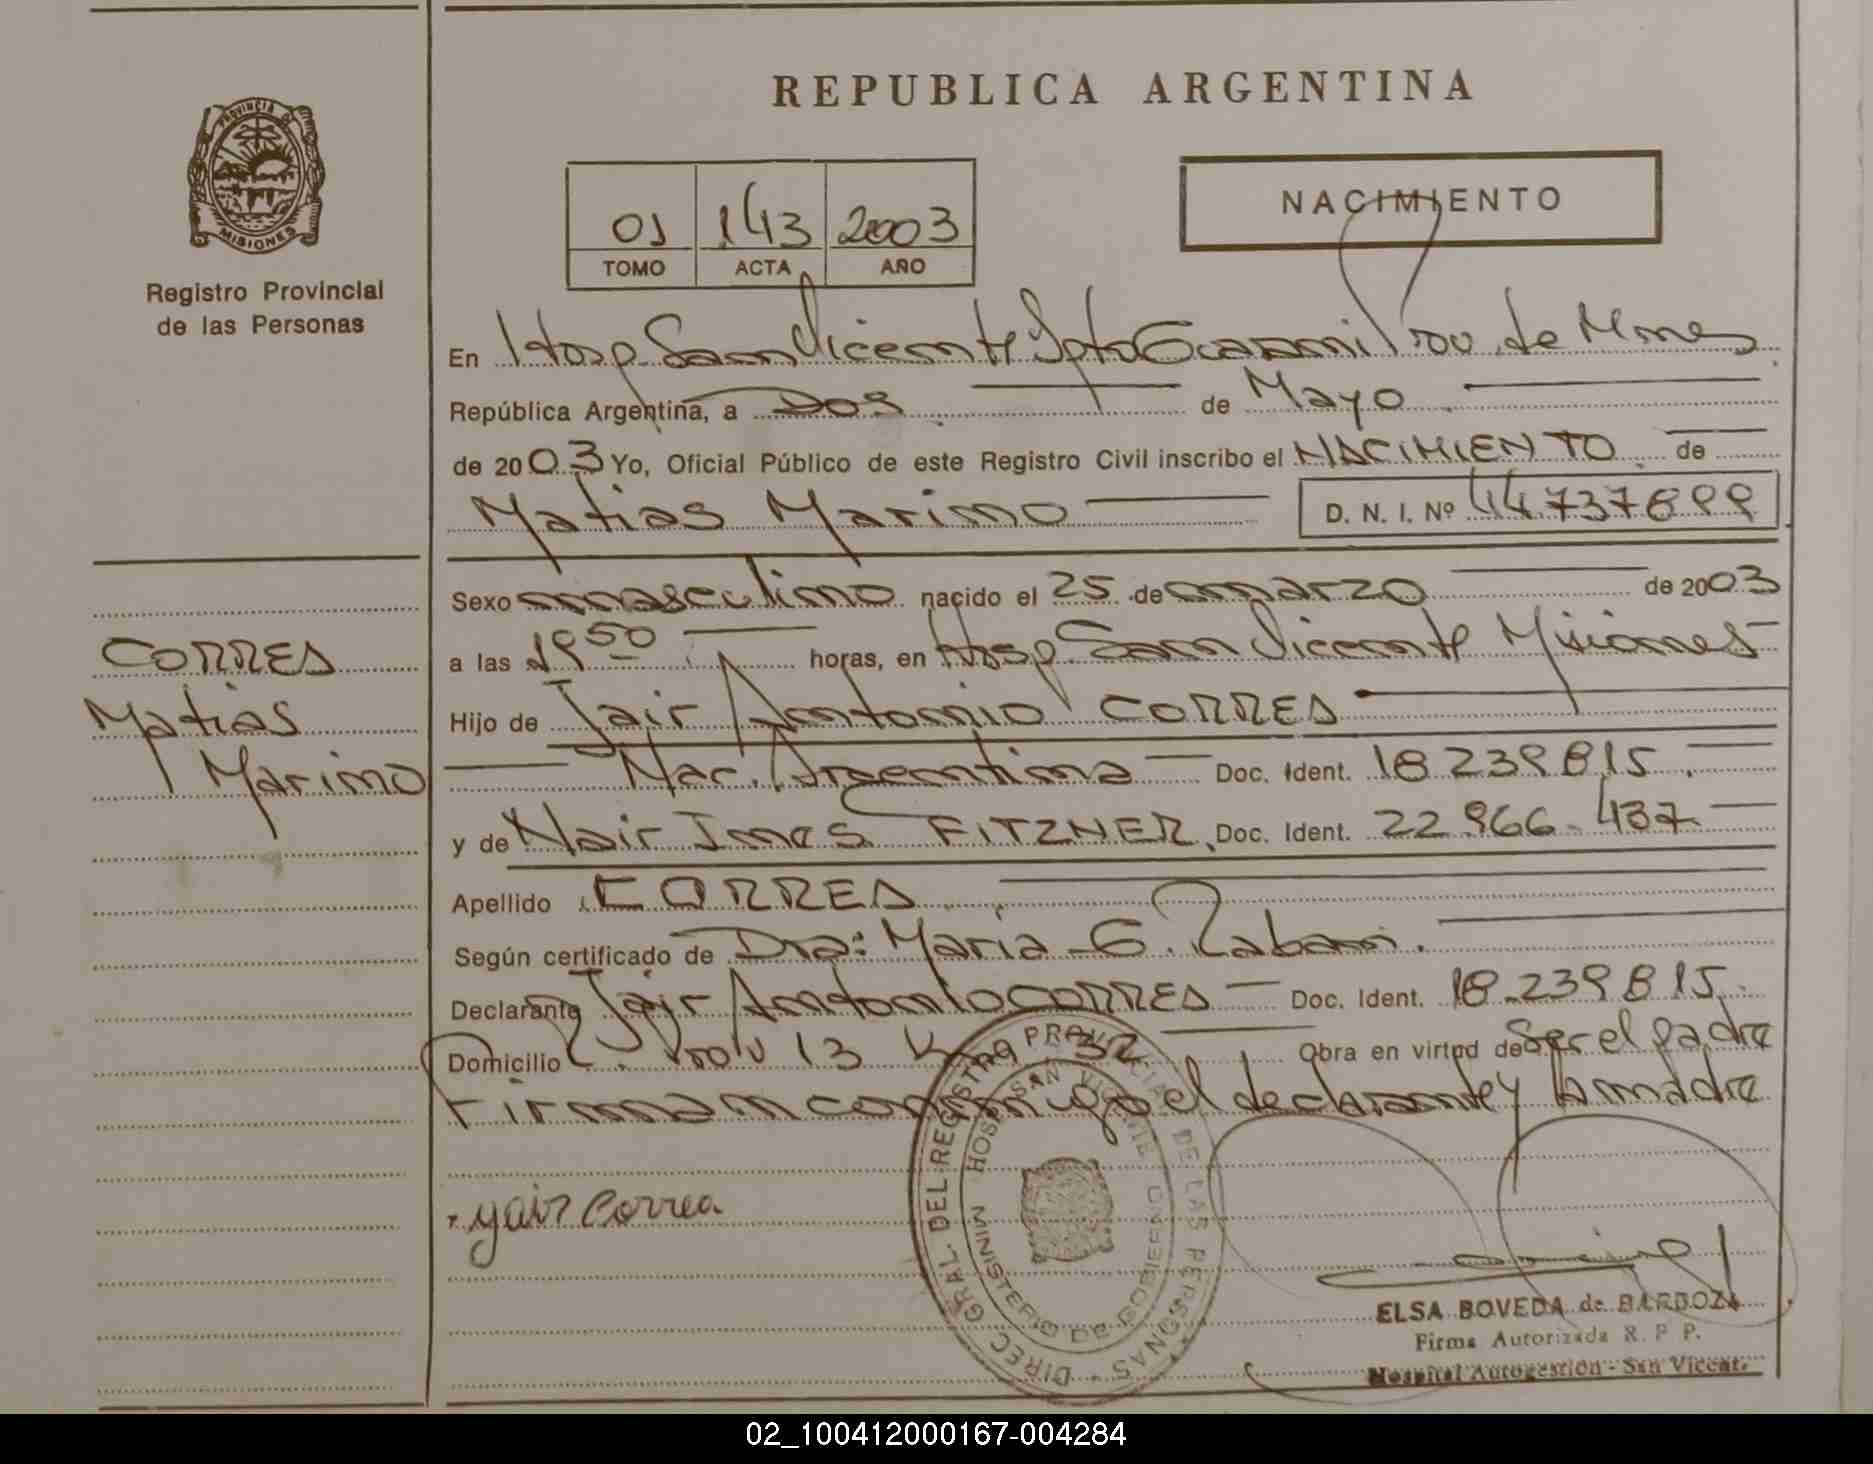 REPUBLICA ARGENTINA
PROVINCIA DE
MISIONES
Registro Provincial
de las Personas
NACIMIENTO
01 143 2003
TOMO ACTA AÑO
En Hosp San Vicente Dpto Guarani Prov. de Mnes
República Argentina, a Dos de Mayo
de 2003 Yo, Oficial Público de este Registro Civil inscribo el NACIMIENTO de
Matias Marino D. N. I. Nº 44737899
Sexo masculino nacido el 25 de marzo de 2003
a las 19 50 horas, en Hosp. San Vicente Misiones
Hijo de Jair Antonio CORREA
Nac. Argentina Doc. Ident. 18.239.815.
y de Nair Ines FITZNER Doc. Ident. 22.966.437
CORREA
Matias
Marino
Apellido CORREA
Según certificado de Dra: Maria G.
Declarante Jair Antonio CORREA Doc. Ident. 18.239.815.
Domicilio 13 Km 32 Obra en virtud de Ser el padre
Firman conmigo el declarante y la madre
yair Correa
DIREC. GRAL. DEL REGISTRO PROVINCIAL DE LAS PERSONAS
HOSP. SAN VICENTE
MINISTERIO DE GOBIERNO
ELSA BOVEDA de BARBOZA
Firma Autorizada R. P. P.
Hospital Autogestión - San Vicente
02_100412000167-004284